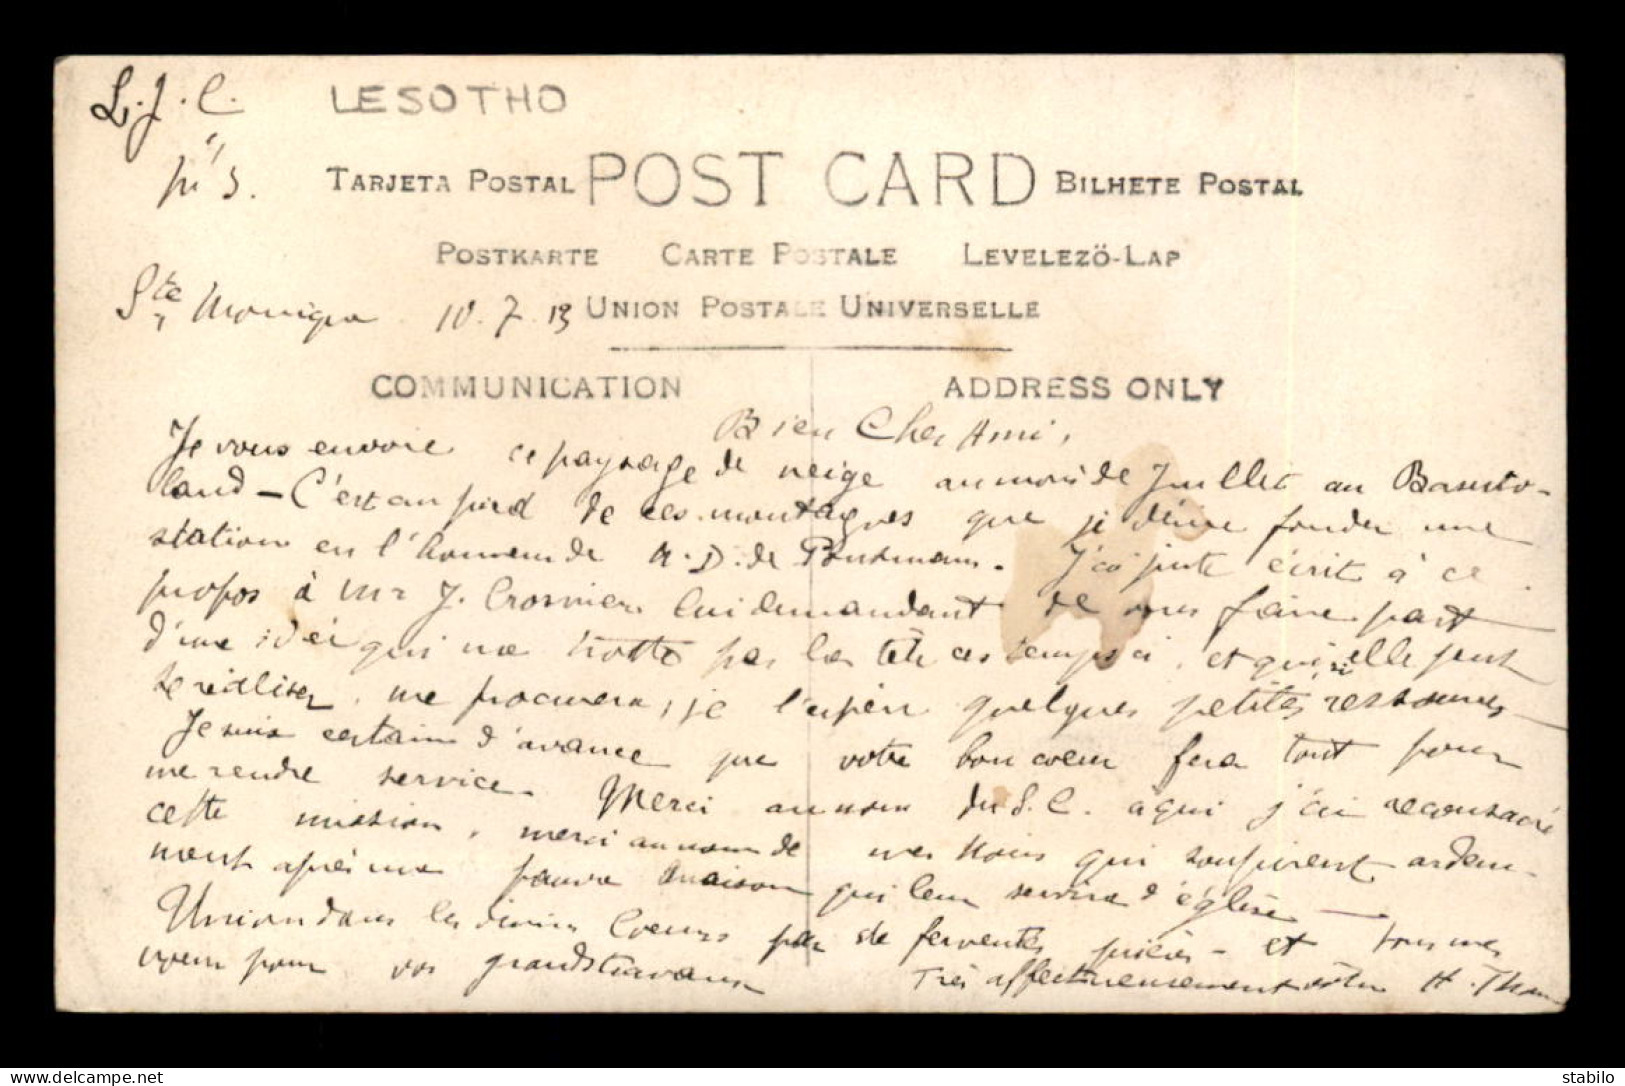 L.J.C. LESOTHO
TARJETA POSTAL POST CARD BILHETE POSTAL
POSTKARTE CARTE POSTALE LEVELEZÖ-LAP
Ste Monique 10.7.13 UNION POSTALE UNIVERSELLE
COMMUNICATION ADDRESS ONLY
Bien Cher Ami,
Je vous envoie ce paysage de neige au mois de Juillet au Basuto-
land - C'est au pied de ces montagnes que je désire fonder une
station en l'honneur de N.D. de . J'ai juste écrit à ce
propos à Mr J. Crosnier lui demandant de vous faire part
d'une idée qui me trotte par la tête ces temps ci, et qui, si elle peut
se réaliser, me procurera, je l'espère quelques petites ressources
Je suis certain d'avance que votre bon coeur fera tout pour
me rendre service. Merci au nom du S.C. à qui j'ai reconsacré
cette mission, merci au nom de mes Noirs qui soupirent ardem-
ment après ma pauvre maison qui leur servira d'église -
Union dans les divins Coeurs par de ferventes prières - et tous mes
voeux pour vos grands travaux Très affectueusement vôtre H.
stabilo